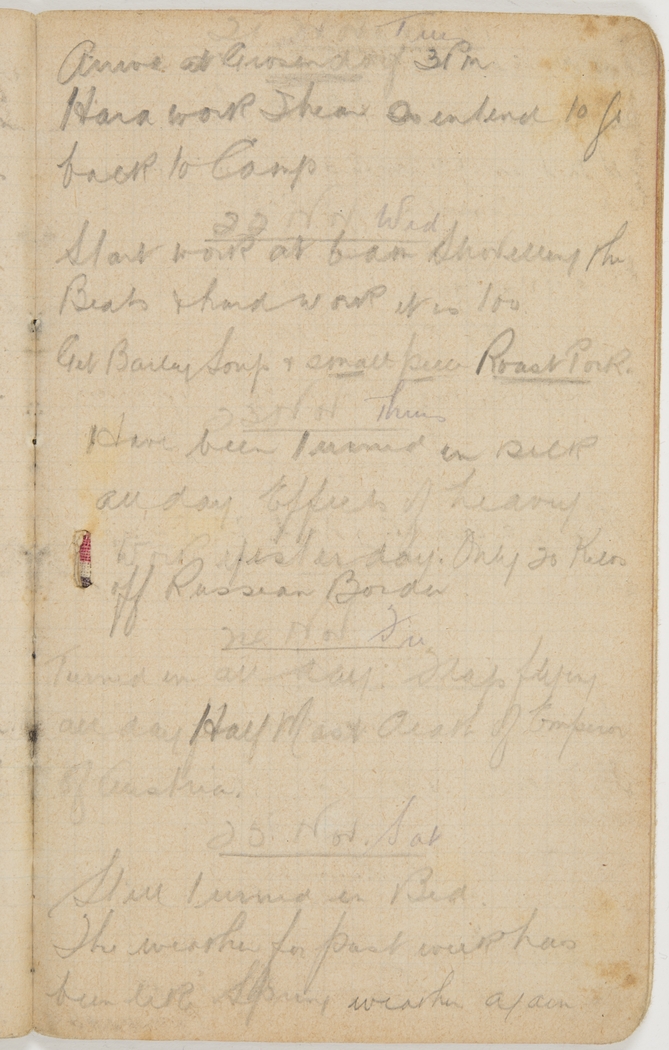 21 Nov Tues
Arrive at Grosendorf 3 Pm
Hard work I hear so intend to go
back to Camp
22 Nov Wed
Start work at 6 am Shovelling the
Beats & hard work it is too
Get Barley Soup & small piece Roast Pork.
23 Nov Thurs
Have been turned in sick
all day Effects of heavy
Work yesterday. Only 20 Kilos
off Russian Border
24 Nov Fri
Turned in all day. Flags flying
all day Half Mast Death of Emperor
of Austria.
25 Nov. Sat
Still turned in Bed.
The weather for past week has
been like Spring weather again